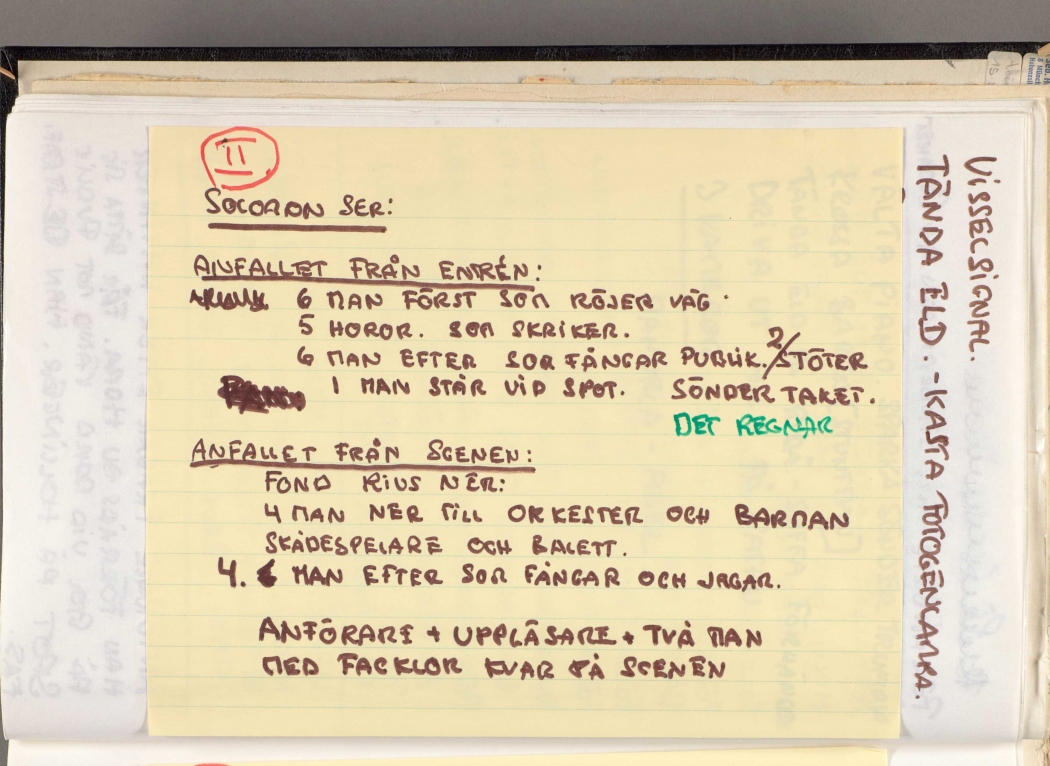 11
SOLDATEN SER:
ANFALLET FRÅN ENTRÉN:
6 MAN FÖRST SOM RÖJER VÄG.
5 HOROR. SOM SKRIKER.
6 MAN EFTER SOM FÅNGAR PUBLIK. 2/STÖTER
1 MAN STÅR VID SPOT. SÖNDER TAKET.
DET REGNAR
ANFALLET FRÅN SCENEN:
FOND RIVS NER:
4 MAN NER TILL ORKESTER OCH BARMAN
SKÅDESPELARE OCH BALETT.
4. MAN EFTER SOM FÅNGAR OCH JAGAR.
ANFÖRARE + UPPLÄSARE + TVÅ MAN
MED FACKLOR KVAR PÅ SCENEN
VISSELSIGNAL.
TÄNDA ELD. - KASTA FOTOGENLAMPA.